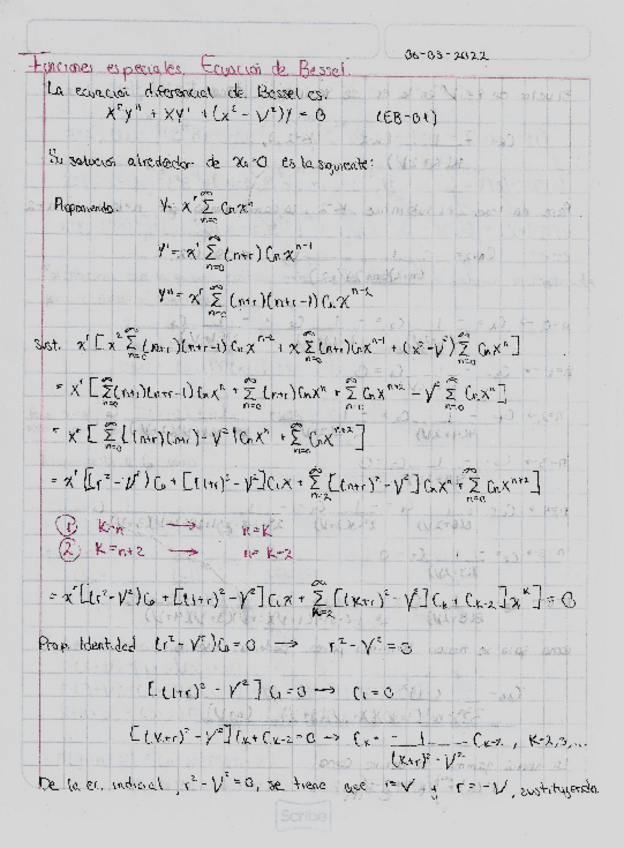 06-03-2022
Funciones especiales. Ecuación de Bessel.
La ecuación diferencial de Bessel es:
x²y'' + xy' + (x² - ν²)y = 0 (EB-01)
Su solución alrededor de x₀=0 es la siguiente:
Proponiendo y = x^r Σ_{n=0}^∞ Cₙxⁿ
y' = x^r Σ_{n=0}^∞ (n+r)Cₙx^{n-1}
y'' = x^r Σ_{n=0}^∞ (n+r)(n+r-1)Cₙx^{n-2}
Sust. x^r [x² Σ_{n=0}^∞ (n+r)(n+r-1)Cₙx^{n-2} + x Σ_{n=0}^∞ (n+r)Cₙx^{n-1} + (x²-ν²) Σ_{n=0}^∞ Cₙxⁿ]
= x^r [Σ_{n=0}^∞ (n+r)(n+r-1)Cₙxⁿ + Σ_{n=0}^∞ (n+r)Cₙxⁿ + Σ_{n=0}^∞ Cₙx^{n+2} - ν² Σ_{n=0}^∞ Cₙxⁿ]
= x^r [Σ_{n=0}^∞ [(n+r)(n+r) - ν²]Cₙxⁿ + Σ_{n=0}^∞ Cₙx^{n+2}]
= x^r [(r²-ν²)C₀ + [(1+r)²-ν²]C₁x + Σ_{n=2}^∞ [(n+r)²-ν²]Cₙxⁿ + Σ_{n=0}^∞ Cₙx^{n+2}]
① K=n → n=K
② K=n+2 → n=K-2
= x^r [(r²-ν²)C₀ + [(1+r)²-ν²]C₁x + Σ_{K=2}^∞ [[(K+r)²-ν²]C_K + C_{K-2}]x^K] = 0
Prop. Identidad (r²-ν²)C₀=0 → r²-ν²=0
[(1+r)² - ν²]C₁=0 → C₁=0
[(K+r)²-ν²]C_K + C_{K-2}=0 → C_K = - 1/((K+r)²-ν²) C_{K-2}, K=2,3,...
De la ec. indicial, r²-ν²=0, se tiene que r=ν y r=-ν, sustituyendo
Scribe